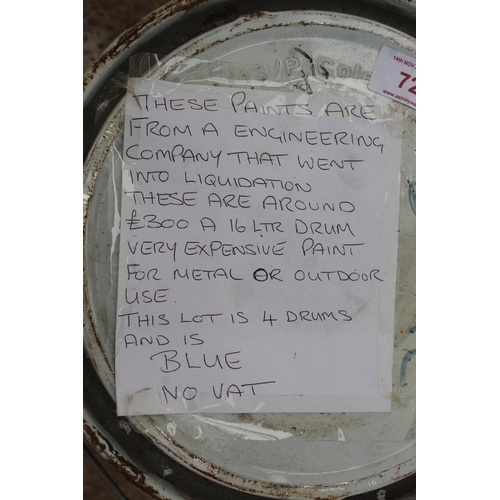 14th NOV
72
THESE PAINTS ARE
FROM A ENGINEERING
COMPANY THAT WENT
INTO LIQUIDATION
THESE ARE AROUND
£300 A 16 LTR DRUM
VERY EXPENSIVE PAINT
FOR METAL OR OUTDOOR
USE.
THIS LOT IS 4 DRUMS
AND IS
BLUE
NO VAT